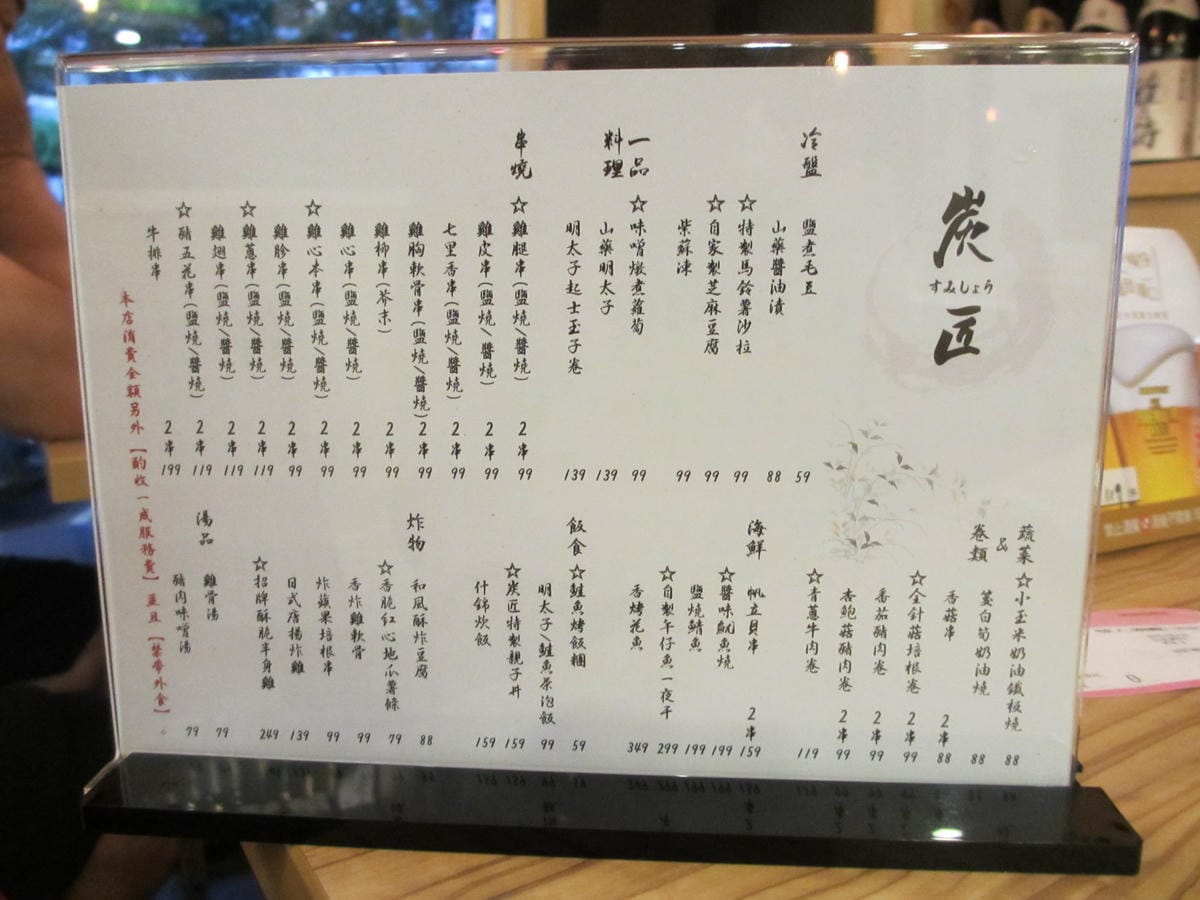 炭匠
すみしょう
冷盤
鹽煮毛豆 59
山藥醬油漬 88
☆特製馬鈴薯沙拉 99
☆自家製芝麻豆腐 99
紫蘇涷 99
一品料理
☆味噌燉煮蘿蔔 99
山藥明太子 139
明太子起士玉子卷 139
串燒
☆雞腿串(鹽燒/醬燒) 2串 99
雞皮串(鹽燒/醬燒) 2串 99
七里香串(鹽燒/醬燒) 2串 99
雞胸軟骨串(鹽燒/醬燒) 2串 99
雞柳串(芥末) 2串 99
雞心串(鹽燒/醬燒) 2串 99
☆雞心本串(鹽燒/醬燒) 2串 99
雞胗串(鹽燒/醬燒) 2串 99
☆雞蔥串(鹽燒/醬燒) 2串 119
雞翅串(鹽燒/醬燒) 2串 119
☆豬五花串(鹽燒/醬燒) 2串 119
牛排串 2串 199
蔬菜&卷類
☆小玉米奶油鐵板燒 88
茭白筍奶油燒 88
香菇串 2串 88
☆金針菇培根卷 2串 99
番茄豬肉卷 2串 99
杏鮑菇豬肉卷 2串 99
☆青蔥牛肉卷 119
海鮮
帆立貝串 2串 159
☆醬味魷魚燒 199
鹽燒鯖魚 199
☆自製午仔魚一夜干 299
香烤花魚 349
飯食
☆鮭魚烤飯糰 59
明太子/鮭魚茶泡飯 99
☆炭匠特製親子丼 159
什錦炊飯 159
炸物
和風酥炸豆腐 88
☆香脆紅心地瓜薯條 79
香炸雞軟骨 99
炸蘋果培根串 99
日式唐揚炸雞 139
☆招牌酥脆半身雞 249
湯品
雞骨湯 79
豬肉味噌湯 79
本店消費金額另外【酌收一成服務費】並且【禁帶外食】。